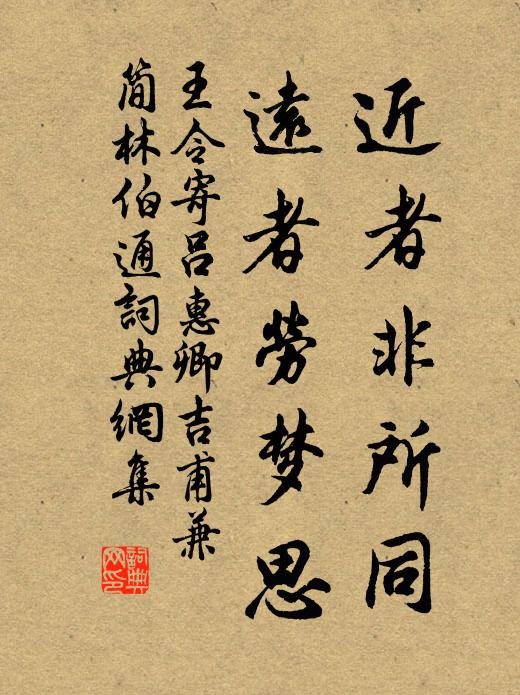 近者非所同
遠者勞梦思
王令寄呂惠卿吉甫兼
简林伯通詞典網集
詞典
网印